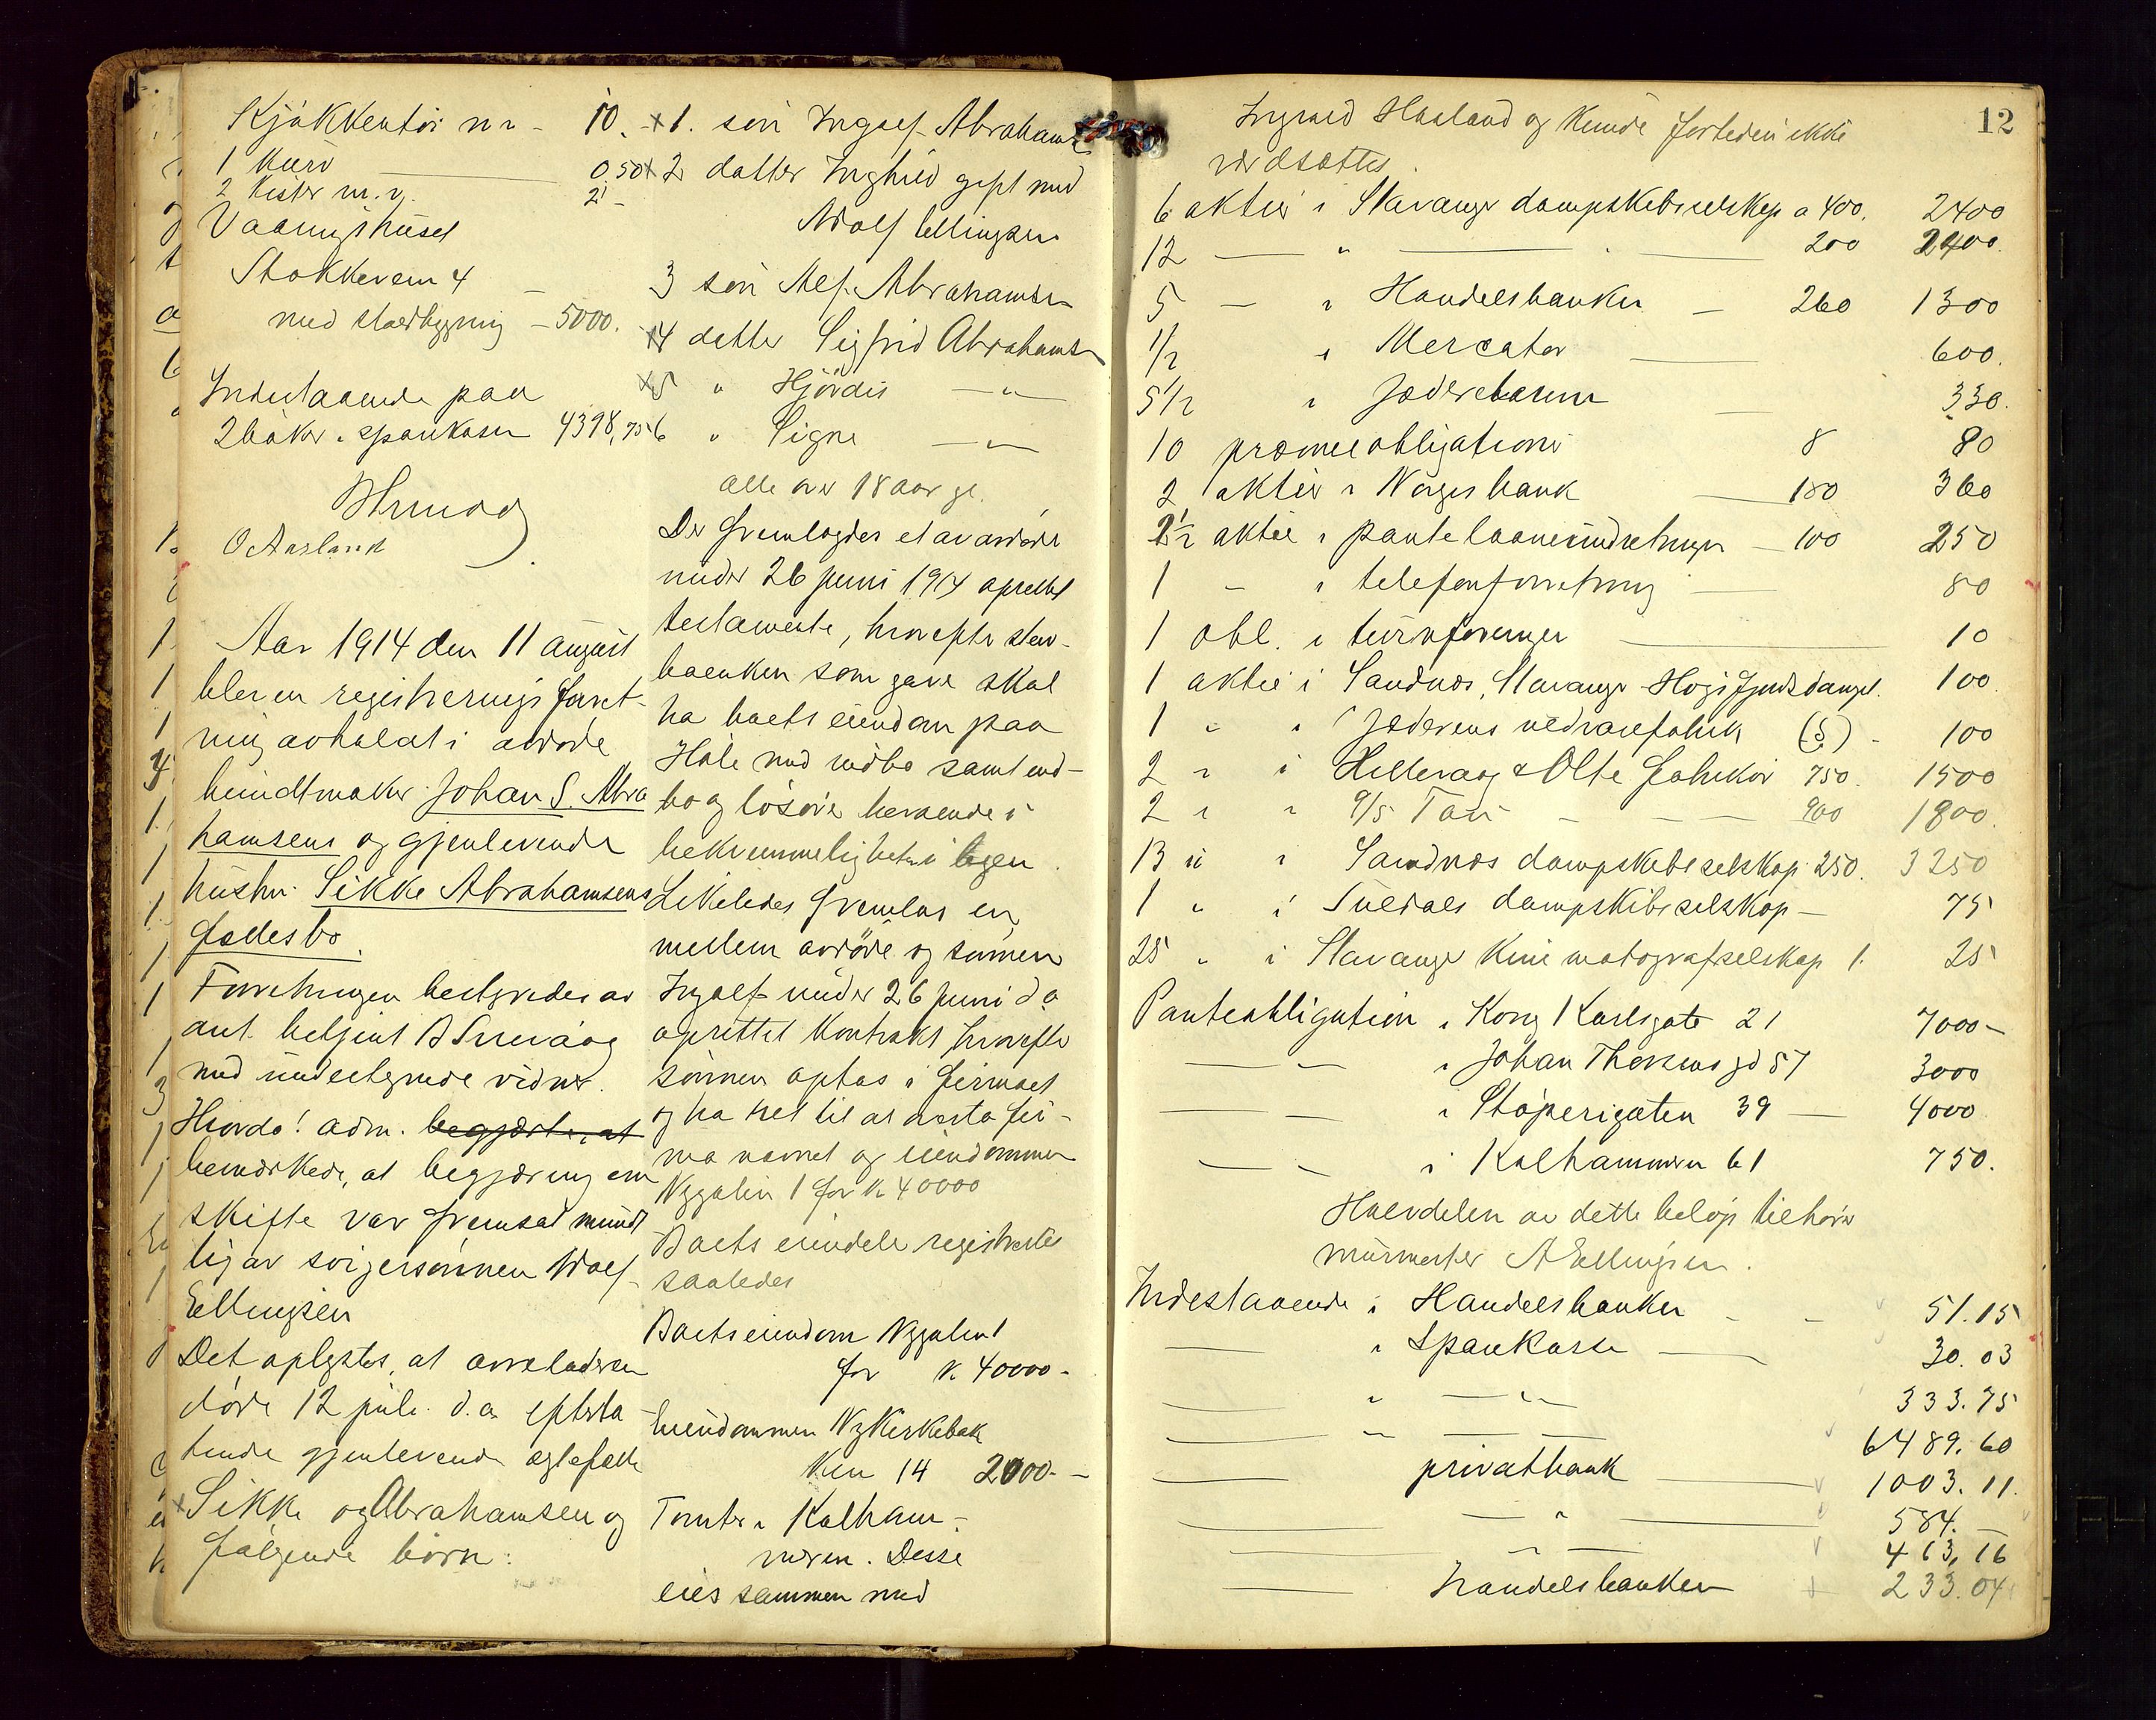 Kjøkkentøi m. v. - 10. -
1 kurv 0,50
2 kister m. v. 2 -
Vaaningshuset
Stokkeveien 4
med stadbygning - 5000.
Indestaaende paa
2 bøker i sparekassen 4398,75
O Aasland
Aar 1914 den 11 august
blev en registreringsforret-
ning avholdt i avdøde
bundtmaker Johan S. Abra
hamsens og gjenlevende
hustru Sikke Abrahamsens
fællesbo.
Forretningen bestyredes av
aut. betjent B Sunaag
med undertegnede vidner.
Hvorda! adm. begjærte, at
bemerkede, at begjæring om
skifte var fremsat mundt
lig av svigersønnen Adolf
Ellingsen
Det oplystes, at arveladeren
døde 12 juli d. a. efterla
tende gjenlevende egtefælle
x Sikke Abrahamsen og
følgende børn:
x 1. søn Ingolf Abrahamsen
x 2 datter Inghild gift med
Adolf Ellingsen
3 søn Alf Abrahamsen
x 4 datter Sigfrid Abrahamsen
x 5 " Hjørdis — " —
6 " Signe — " —
alle over 18 aar gl.
Der fremlagdes et av avdøde
under 26 juni 1914 oprettet
testamente, hvorefter
enken som gave skal
ha boets eiendom paa
Hole med indbo samt ind-
bo og løsøre beroende i
bekvemmeligheten i byen.
Likeledes fremlas en
mellem avdøde og sønnen
Ingolf under 26 juni d a
oprettet kontrakt hvorefter
sønnen optas i firmaet
og ha ret til at overta fir-
ma navnet og eiendommen
Nygaten 1 for k 40000
Boets eiendele registrertes
saaledes
Boets eiendom Nygaten 1
for k. 40000 -
Eiendommen Ny Kirkebak
ken 14 2000 - -
Tomter i Kalham-
meren. Disse
eies sammen med
12
Ingvald Haaland og kunde forteden ikke
værdsættes.
6 aktier i Stavanger dampskibsselskap a 400. 2400
12 — " — 200 2400.
5 — i Handelsbanken — 260 1300
1/2 i Mercator — 600.
5 1/2 i Jæderebaren — 330.
10 præmieobligationer 8 80
2 aktier i Norges bank — 180 360
2 1/2 aktie i pantelaaneindretningen — 100 250
1 — i telefonforretning — 80
1 obl. i turnforeningen — 10
1 aktie i Sandnæs, Stavanger Høgsfjords dampsk. 100.
1 " i Jæderens uldvarefabrik (§) - 100
2 " i Hillevaag & Olte fabriker 750. 1500
2 " " 9/5 Tau — — — 900 1800.
13 " i Sandnæs dampskibsselskap 250. 3250
1 " i Suldals dampskibsselskap — 75
25 " i Stavanger Kinematografselskap 1. 25
Panteobligation i Kong Karlsgate 21 7000 —
— — i Johan Thorsens gd 57 3000
— — i Støperigaten 39 — 4000
— — i Kalhammeren 61 750.
Halvdelen av dette beløp tilhører
murmester A Ellingsen.
Indestaaende i Handelsbanken - - 51.15
— i Sparekasse — 30. 03
— " — " — 333. 75
— " — — 6489. 60
— privatbank — 1003. 11.
— — " — 584. —
— — " — 463, 16
— Handelsbanken 233. 04